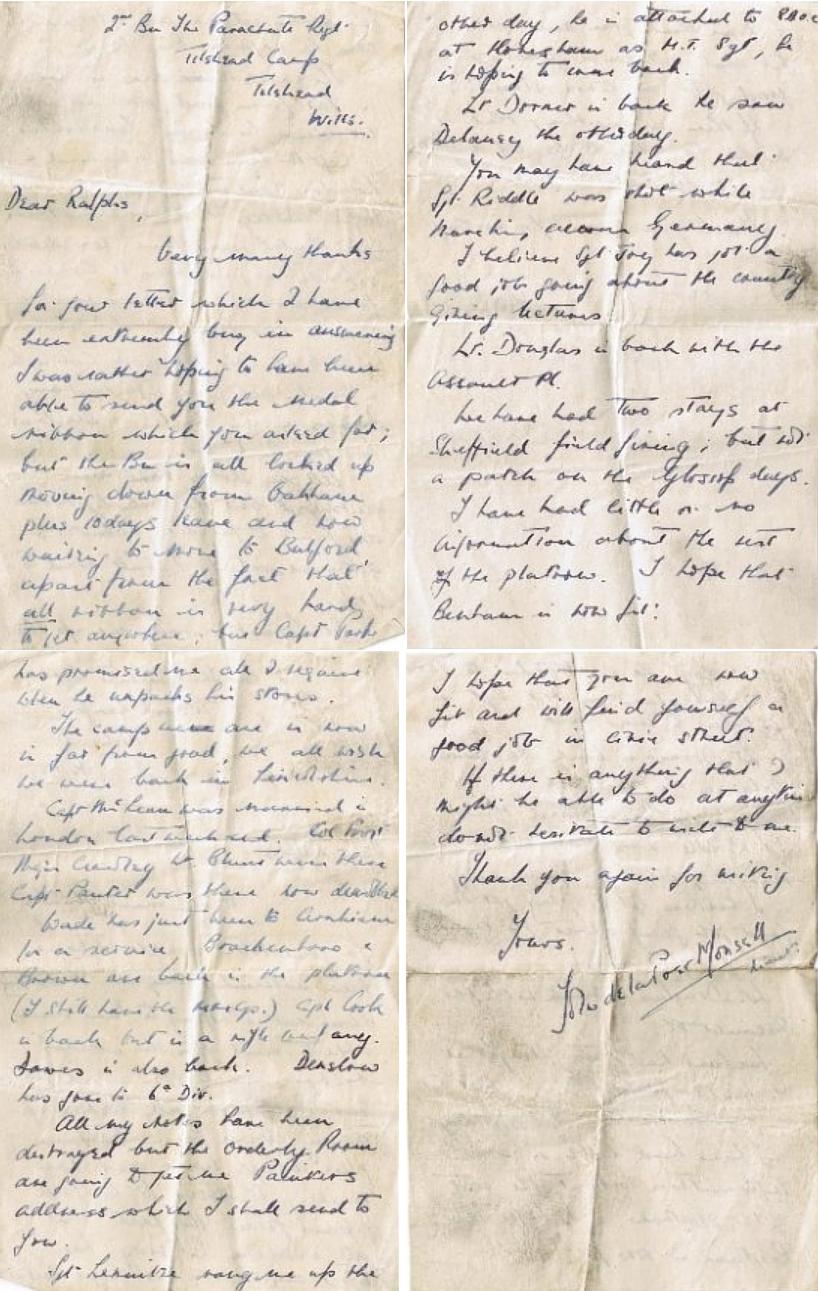 2nd Bn The Parachute Regt.
Tilshead Camp
Tilshead
Wilts.
Dear Ralphs,
Very many thanks
for your letter which I have
been extremely busy in answering
I was rather hoping to have been
able to send you the medal
ribbon which you asked for;
but the Bn is all locked up
moving down from Oakham
plus 10 days leave and now
waiting to move to Bulford,
apart from the fact that
all ribbon is very hard
to get anywhere; but Capt
has promised me all I require
when he unpacks his stores.
The camp we are in now
is far from good, we all wish
we were back in Lincolnshire.
Capt McLean was married in
London last weekend. Col Frost
Major Crawley Lt Blunt were there
Capt Panter was there now
Wade has just been to Arnhem
for a service &
Brown are back in the platoon
(I still have the .) Capt Cook
is back but is a
is also back. Denslow
has gone to 6th Div.
All my notes have been
destroyed but the Orderly Room
are going to get me
address which I shall send to
you.
Sgt rang me up the
other day, he is attached to
at as M.T. Sgt, he
is hoping to come back.
Lt Dormer is back he saw
Delaney the other day.
You may have heard that
Sgt. Riddle was shot while
travelling across Germany.
I believe Sgt has got a
good job going about the country
giving lectures
Lt. Douglas is back with the
Assault Pl.
We have had two stays at
Sheffield field firing; but not
a patch on the Glossop days.
I have had little or no
information about the rest
of the platoon. I hope that
is now fit!
I hope that you are now
fit and will find yourself a
good job in civie street.
If there is anything that I
might be able to do at anytime
do not hesitate to write to me.
Thank you again for writing
Yours.
John de la Poer Monsell